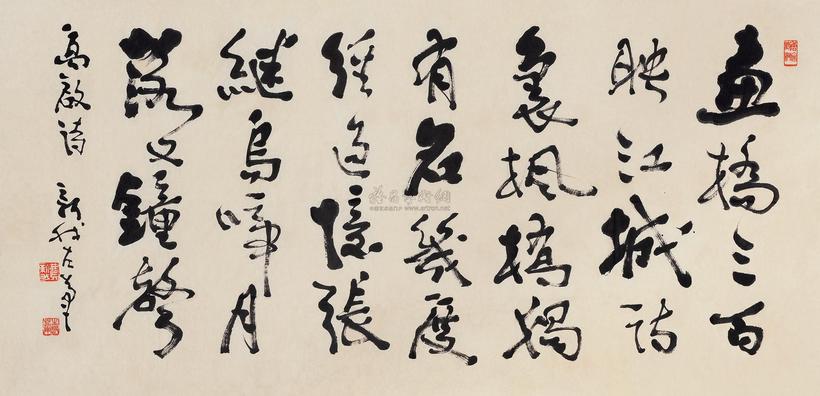 畫橋三百
映江城詩
裏楓橋獨
有名幾度
經過憶張
繼烏啼月
落又鐘聲
高啟詩 新我左筆
雅昌藝術網
www.artron.net